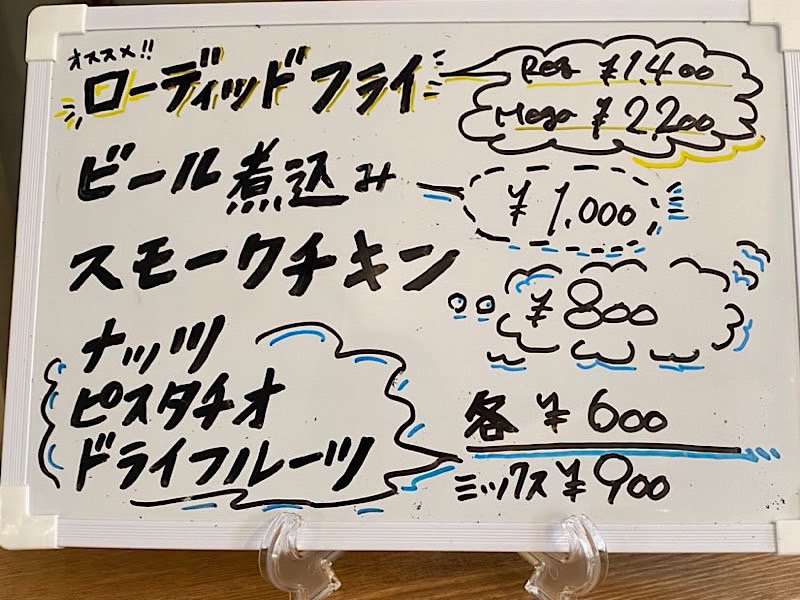 オススメ!!
ローディッドフライ
Reg ¥1,400
Mega ¥2,200
ビール煮込み
¥1,000
スモークチキン
¥800
ナッツ
ピスタチオ
ドライフルーツ
各 ¥600
ミックス ¥900